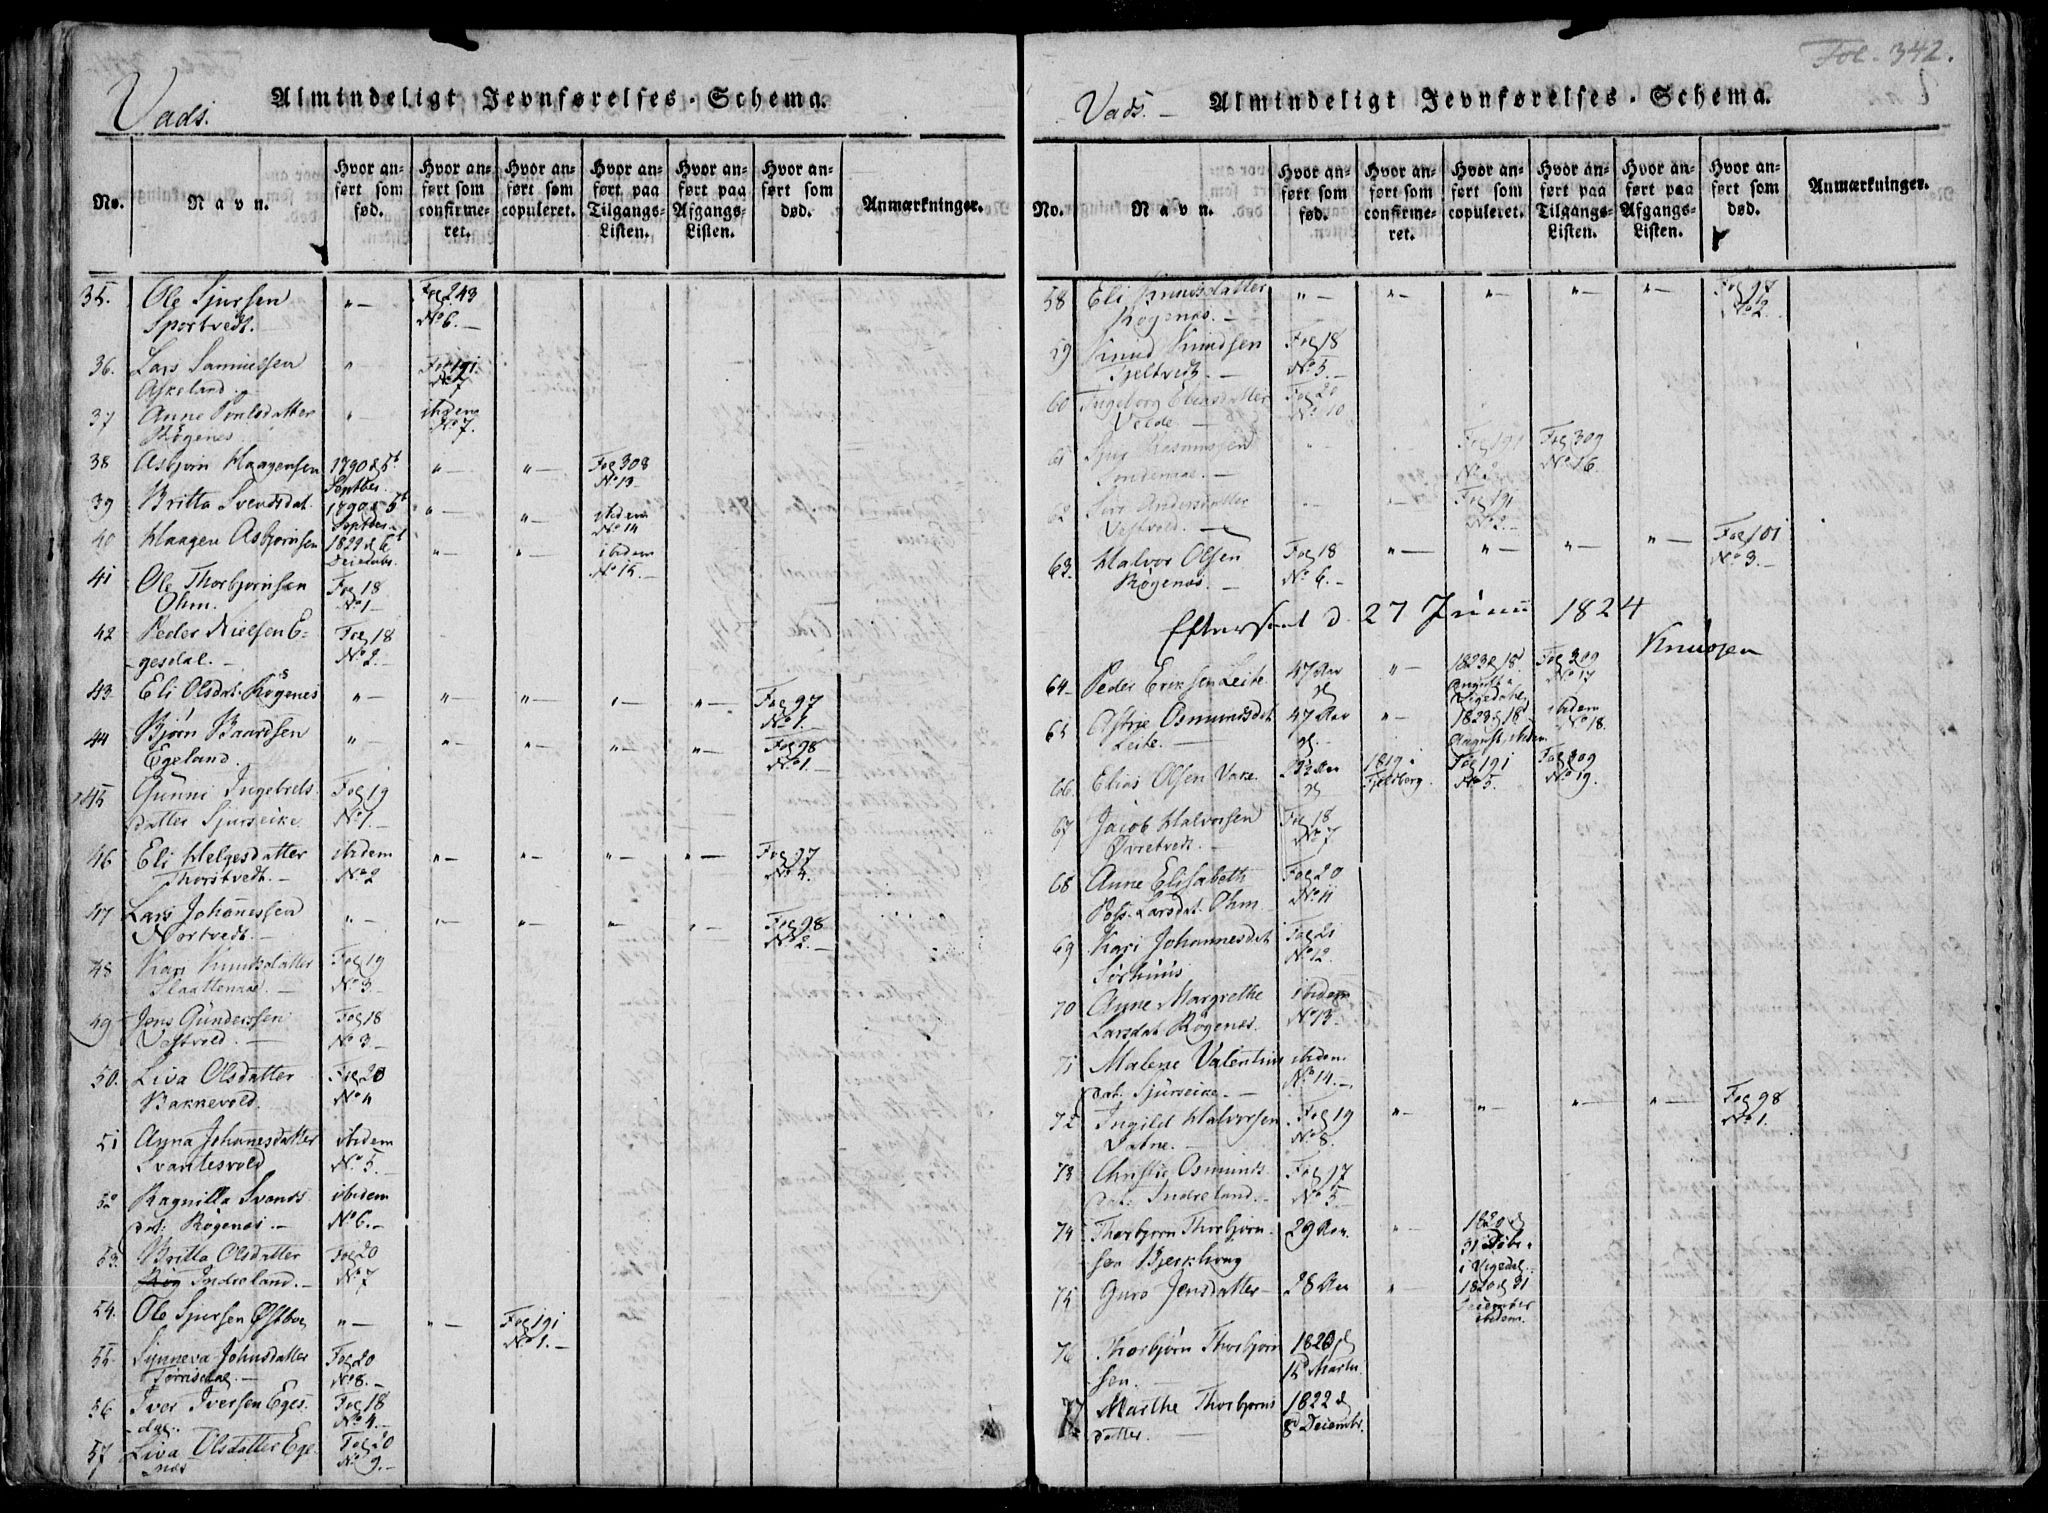 Vads.
Almindeligt Jevnførelses-Schema.
No.
Navn.
Hvor anført som fød.
Hvor anført som confirmeret.
Hvor anført som copuleret.
Hvor anført paa Tilgangs-Listen.
Hvor anført paa Afgangs-Listen.
Hvor anført som død.
Anmærkninger.
35. Ole Sjursen " — Fol 243
Sportvedt. — No 6. —
36. Lars Samuelsen " Fol 191
Askeland. No 7
37 Anne Poulsdatter " ibidem
Røgenes No 7.
38 Asbjørn Haagensen 1790 d 5t " — " — Fol 308
Septber. No 13
39 Britta Svendsdat. 1790 d 5t " — " — ibidem
Septber No 14
40 Haagen Asbjørnsen 1822 d 6t " — " — ibidem
Decembr. No 15. —
41 Ole Thorbjørnsen Fol 18
Ohm. No 1 —
42 Peder Nielsen E- Fol 18
gesdal. — No 2. —
43. Eli Olsdat. Røgenes " — " — " — " — " — Fol 97
No 1. —
44 Bjørn Baardsen " — " — " — " — " — Fol 98
Egeland. — No 1. —
45 Gunni Ingebrets Fol 19
datter Sjurseike. No 1. —
46 Eli Helgesdatter ibidem " — " — " — " — Fol 97
Thorstvedt. — No 2 No 4. —
47 Lars Johannessen " — " — " — " — " — Fol 98
Nortvedt. — No 2. —
48 Kari Knudsdatter Fol 19
Slaattenæs. — No 3. —
49 Jens Gunderssen Fol 18
Vestvold. — No 3. —
50. Liva Olsdatter Fol 20
Bakkevold. No 4
51 Anna Johannesdatter ibidem
Svantesvold No 5. —
52 Ragnilla Svends ibidem
dat: Røgenes. — No 6. —
53. Britta Olsdatter Fol 20
Indreland. — No 7
54. Ole Sjursen Østboe " — " — Fol 191
No 1. —
55. Synneva Johnsdatter Fol 20
Tørrisdal. — No 8. —
56 Iver Iversen Eges- Fol 18
dal. No 4. —
57 Liva Olsdatter Ege- Fol 20
næs No 9. —
Fol. 342.
Vads. —
Almindeligt Jevnførelses-Schema.
No.
Navn.
Hvor anført som fød.
Hvor anført som confirmeret.
Hvor anført som copuleret.
Hvor anført paa Tilgangs-Listen.
Hvor anført paa Afgangs-Listen.
Hvor anført som død.
Anmærkninger.
58 Eli Knudsdatter " — " — " — " — " — Fol 98
Røgenes. — No 2. —
59 Knud Knudsen Fol 18
Tveltvedt. — No 5. —
60 Ingeborg Eliasdatter Fol 20
Velde. — No 10
61 Sjur Rasmussen " — Fol 191 Fol 309
Søndenaae. — No 2. — No 16.
62 Siri Andersdatter Fol 191
Vestvold. — No 2. —
63. Halvor Olsen Fol 18 " — " — " — " — Fol 101
Røgenes. — No 6. — No 3. —
Efterseet d. 27 Junii 1824
Knudsen
64 Peder Eriksen Leite 47 Aar " — 1823 d 18 Fol 309
August i No 17
Vigedahl
65 Astrie Osmundsdat 47 Aar " — 1823 d 18 ibidem
Leite. — August ibidem No 18.
66. Elias Olsen Vake 1819 i Fol 191 Fol 309
Fjeldberg. No 5. No 19.
67 Jacob Halvorsen Fol 18
Øvretvedt. — No 7
68 Anne Elisabeth Fol 20
Larsdat. Ohm. No 11
69 Kari Johannesdat Fol 21
Sørhuus No 12.
70 Anne Margrethe ibidem
Larsdat Røgenes. No 13. —
71 Malene Valentins ibidem
dat. Sjurseike. — No 14. —
72 Ingild Halvorsen Fol 19 " — " — " — " — Fol 98
Vatne. — No 8. No 1.
73 Christie Osmunds Fol 17
dat. Indreland. — No 5 —
74 Thorbjørn Thorbjørn- 29 Aar. " — 1820 d
sen Bjerkhoug 31 Debr.
i Vigedal.
75 Guro Jensdatter — 28 Aar " — 1820 d 31
December
ibidem.
76 Thorbjørn Thorbjørn 1820 d
sen. 15 Martii
77 Marthe Thorbjørns 1822 d
datter. — 8 Decembr.